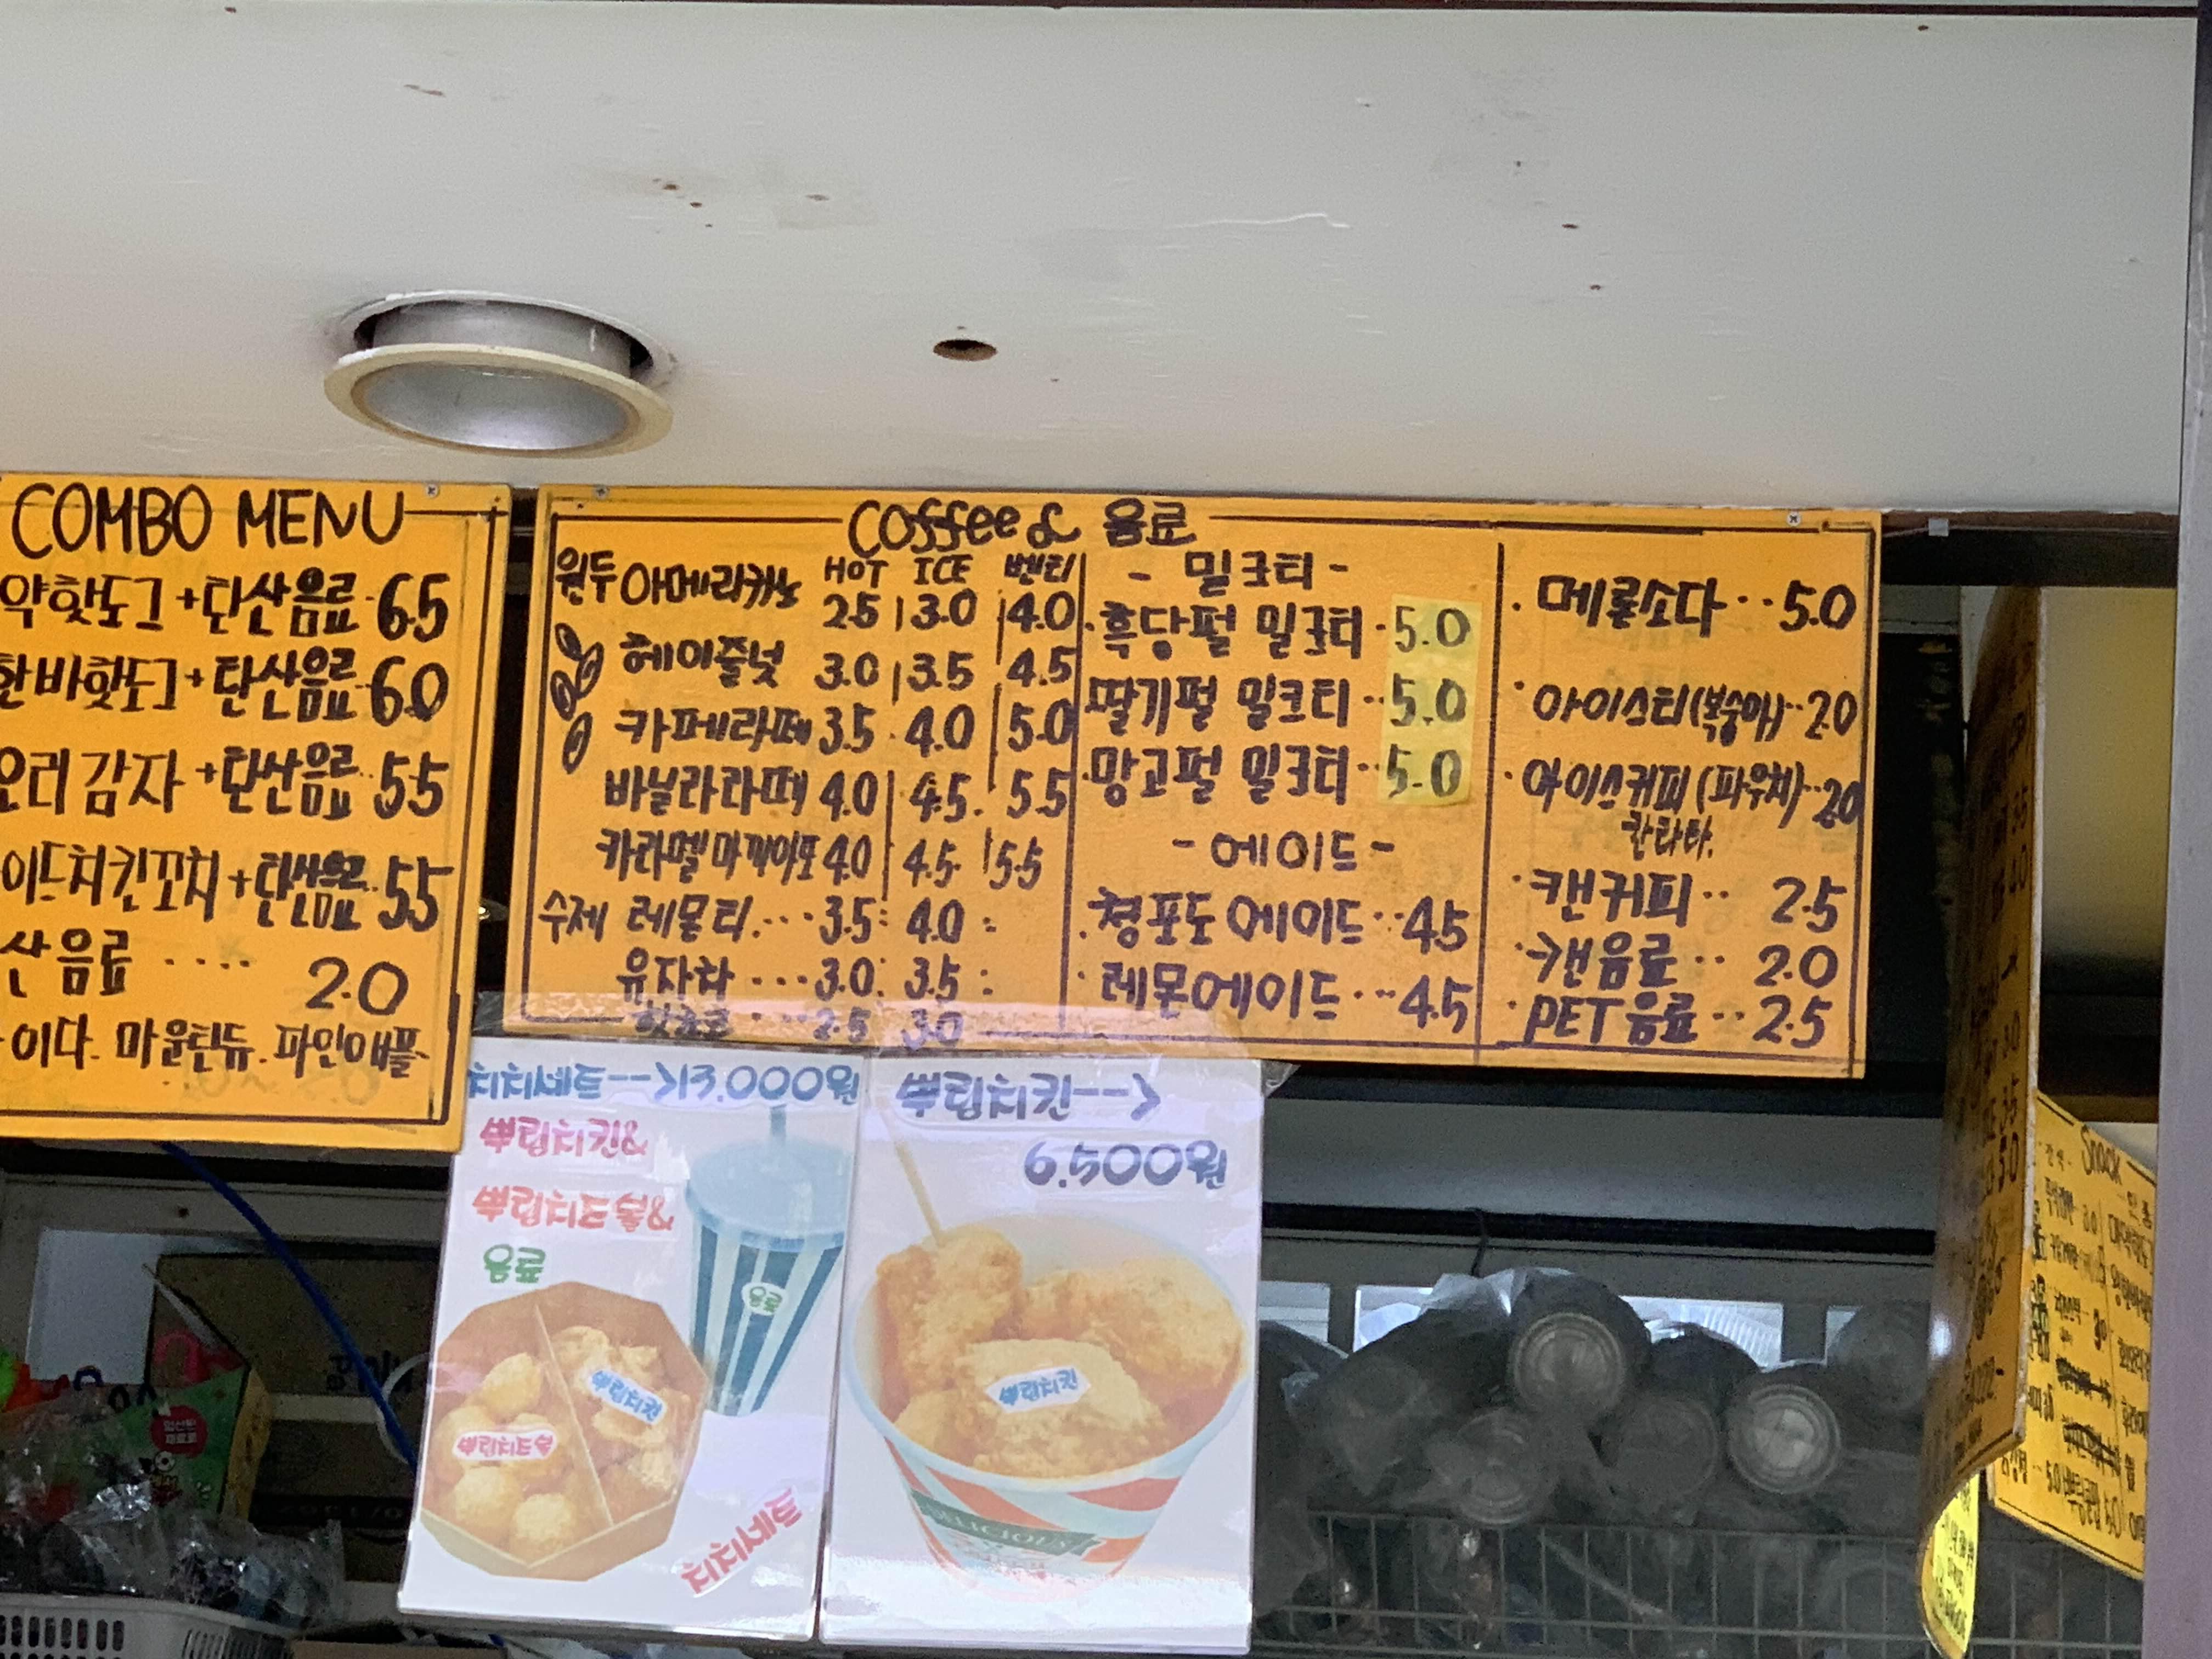 COMBO MENU
약핫도그+탄산음료 6.5
한바핫도그+탄산음료 6.0
오리감자+탄산음료 5.5
이드치킨꼬치+탄산음료 5.5
산음료 .... 2.0
이다. 마운틴듀. 파인애플
Coffee & 음료
HOT ICE 벤티
원두 아메리카노 2.5 3.0 4.0
헤이즐넛 3.0 3.5 4.5
카페라떼 3.5 4.0 5.0
바닐라라떼 4.0 4.5 5.5
카라멜마끼아또 4.0 4.5 5.5
수제 레몬티 ... 3.5 4.0
유자차 ... 3.0 3.5
핫초코 .... 2.5 3.0
- 밀크티 -
흑당펄 밀크티 5.0
딸기펄 밀크티 5.0
망고펄 밀크티 5.0
- 에이드 -
청포도에이드 4.5
레몬에이드 4.5
메론소다 5.0
아이스티(복숭아) 2.0
아이스커피(파우치) 2.0
칸타타.
캔커피 2.5
캔음료 2.0
PET음료 2.5
치치세트-->13.000원
뿌링치킨&
뿌링치즈볼&
음료
음료
뿌링치킨
뿌링치즈볼
치치세트
뿌링치킨-->
6.500원
뿌링치킨
DELICIOUS
Snack